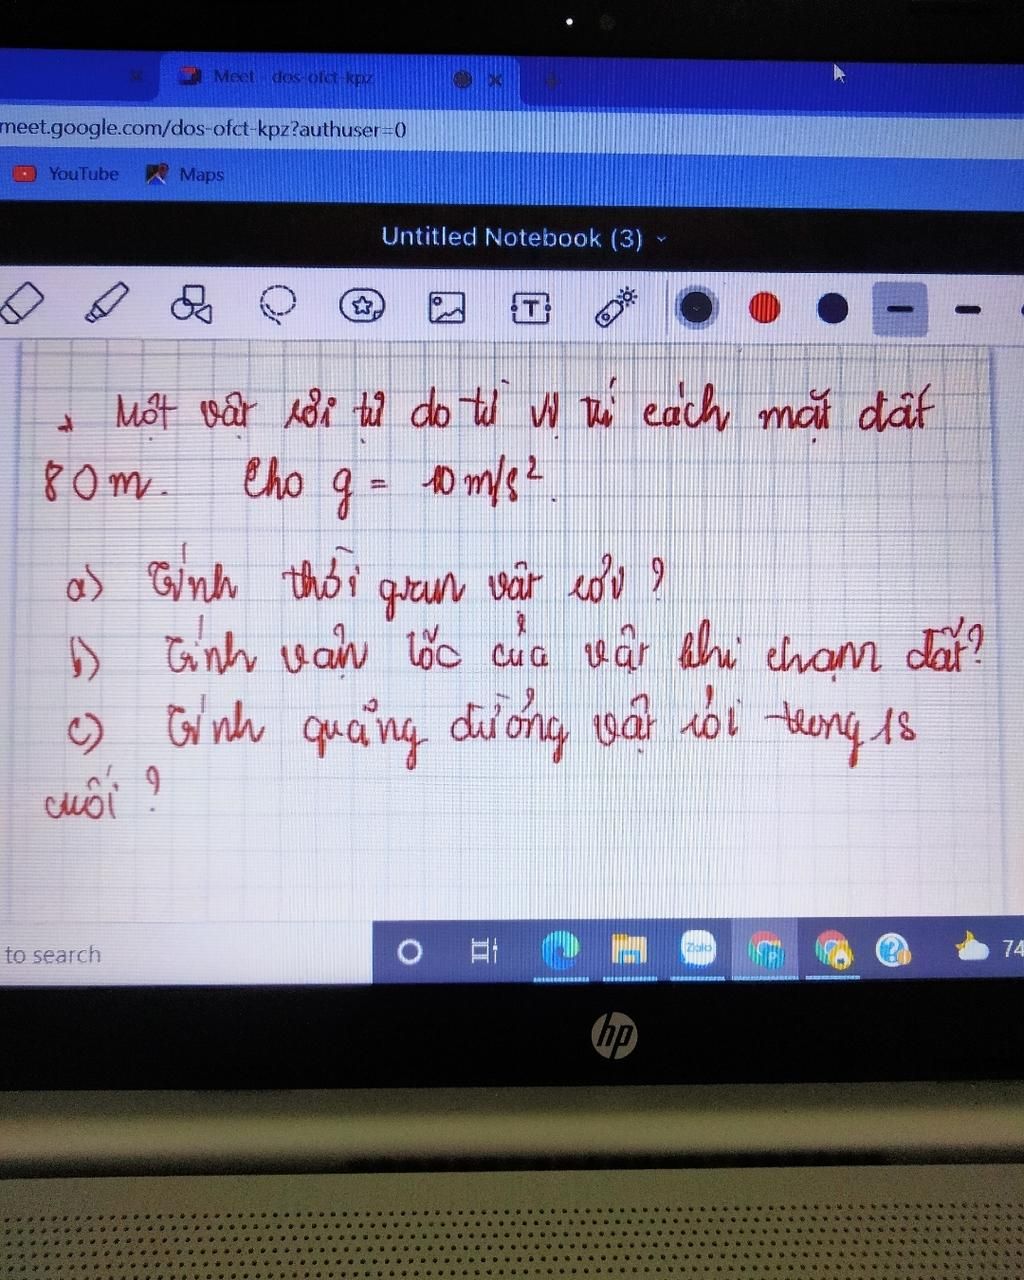 Meet - dos-ofct-kpz
meet.google.com/dos-ofct-kpz?authuser=0
YouTube Maps
Untitled Notebook (3)
T
Một vật rơi tự do từ vị trí cách mặt đất
80m. Cho g = 10 m/s².
a) Tính thời gian vật rơi?
b) Tính vận tốc của vật khi chạm đất?
c) Tính quãng đường vật rơi trong 1s
cuối?
to search
Zalo
74
hp